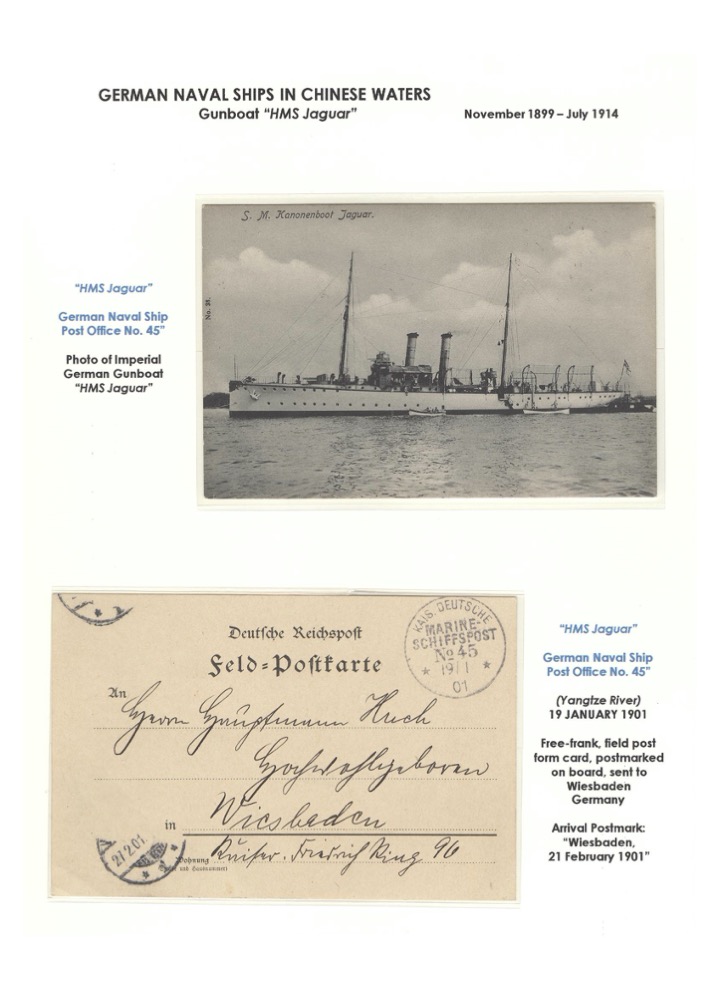 GERMAN NAVAL SHIPS IN CHINESE WATERS
Gunboat “HMS Jaguar”
November 1899 – July 1914
S. M. Kanonenboot Jaguar.
“HMS Jaguar”
German Naval Ship
Post Office No. 45”
Photo of Imperial
German Gunboat
“HMS Jaguar”
KAIS. DEUTSCHE
MARINE-
SCHIFFSPOST
No 45
19/1
01
Deutsche Reichspost
Feld=Postkarte
An
Herrn Hauptmann Huch
Hochwohlgeboren
in
Wiesbaden
Wohnung
Kaiser. Friedrich Ring 96
“HMS Jaguar”
German Naval Ship
Post Office No. 45”
(Yangtze River)
19 JANUARY 1901
Free-frank, field post
form card, postmarked
on board, sent to
Wiesbaden
Germany
Arrival Postmark:
“Wiesbaden,
21 February 1901”